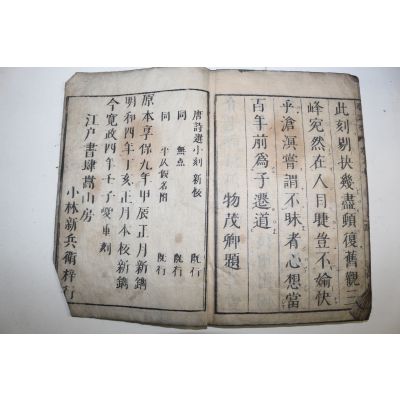 此刻剔抉幾盡頓復舊觀三
峰宛然在人目睫豈不媮快
乎滄溟嘗謂不昧者心想當
百年前為予遷道
物茂卿題
唐詩選小刻 新板
同 無点 既行
同 平仄仮名附 既行
原本享保九年甲辰正月新鐫
明和四年丁亥正月本校新鐫
今寛政四年壬子夏重刻
江户書肆嵩山房
小林新兵衛梓行